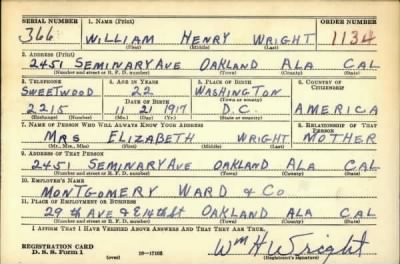 SERIAL NUMBER 1. NAME (Print) ORDER NUMBER
366 WILLIAM HENRY WRIGHT 1134
(First) (Middle) (Last)
2. ADDRESS (Print)
2451 SEMINARY AVE OAKLAND ALA CAL
(Number and street or R. F. D. number) (Town) (County) (State)
3. TELEPHONE 4. AGE IN YEARS 5. PLACE OF BIRTH 6. COUNTRY OF CITIZENSHIP
SWEETWOOD 22 WASHINGTON
DATE OF BIRTH (Town or county)
2215 11 21 1917 D.C. AMERICA
(Exchange) (Number) (Mo.) (Day) (Yr.) (State or country)
7. NAME OF PERSON WHO WILL ALWAYS KNOW YOUR ADDRESS 8. RELATIONSHIP OF THAT PERSON
MRS ELIZABETH WRIGHT MOTHER
(Mr., Mrs., Miss) (First) (Middle) (Last)
9. ADDRESS OF THAT PERSON
2451 SEMINARY AVE OAKLAND ALA CAL
(Number and street or R. F. D. number) (Town) (County) (State)
10. EMPLOYER'S NAME
MONTGOMERY WARD & CO
11. PLACE OF EMPLOYMENT OR BUSINESS
29th AVE & E14th St OAKLAND ALA CAL
(Number and street or R. F. D. number) (Town) (County) (State)
I AFFIRM THAT I HAVE VERIFIED ABOVE ANSWERS AND THAT THEY ARE TRUE.
REGISTRATION CARD
D. S. S. Form 1 (over) Wm H Wright
(Registrant's signature)